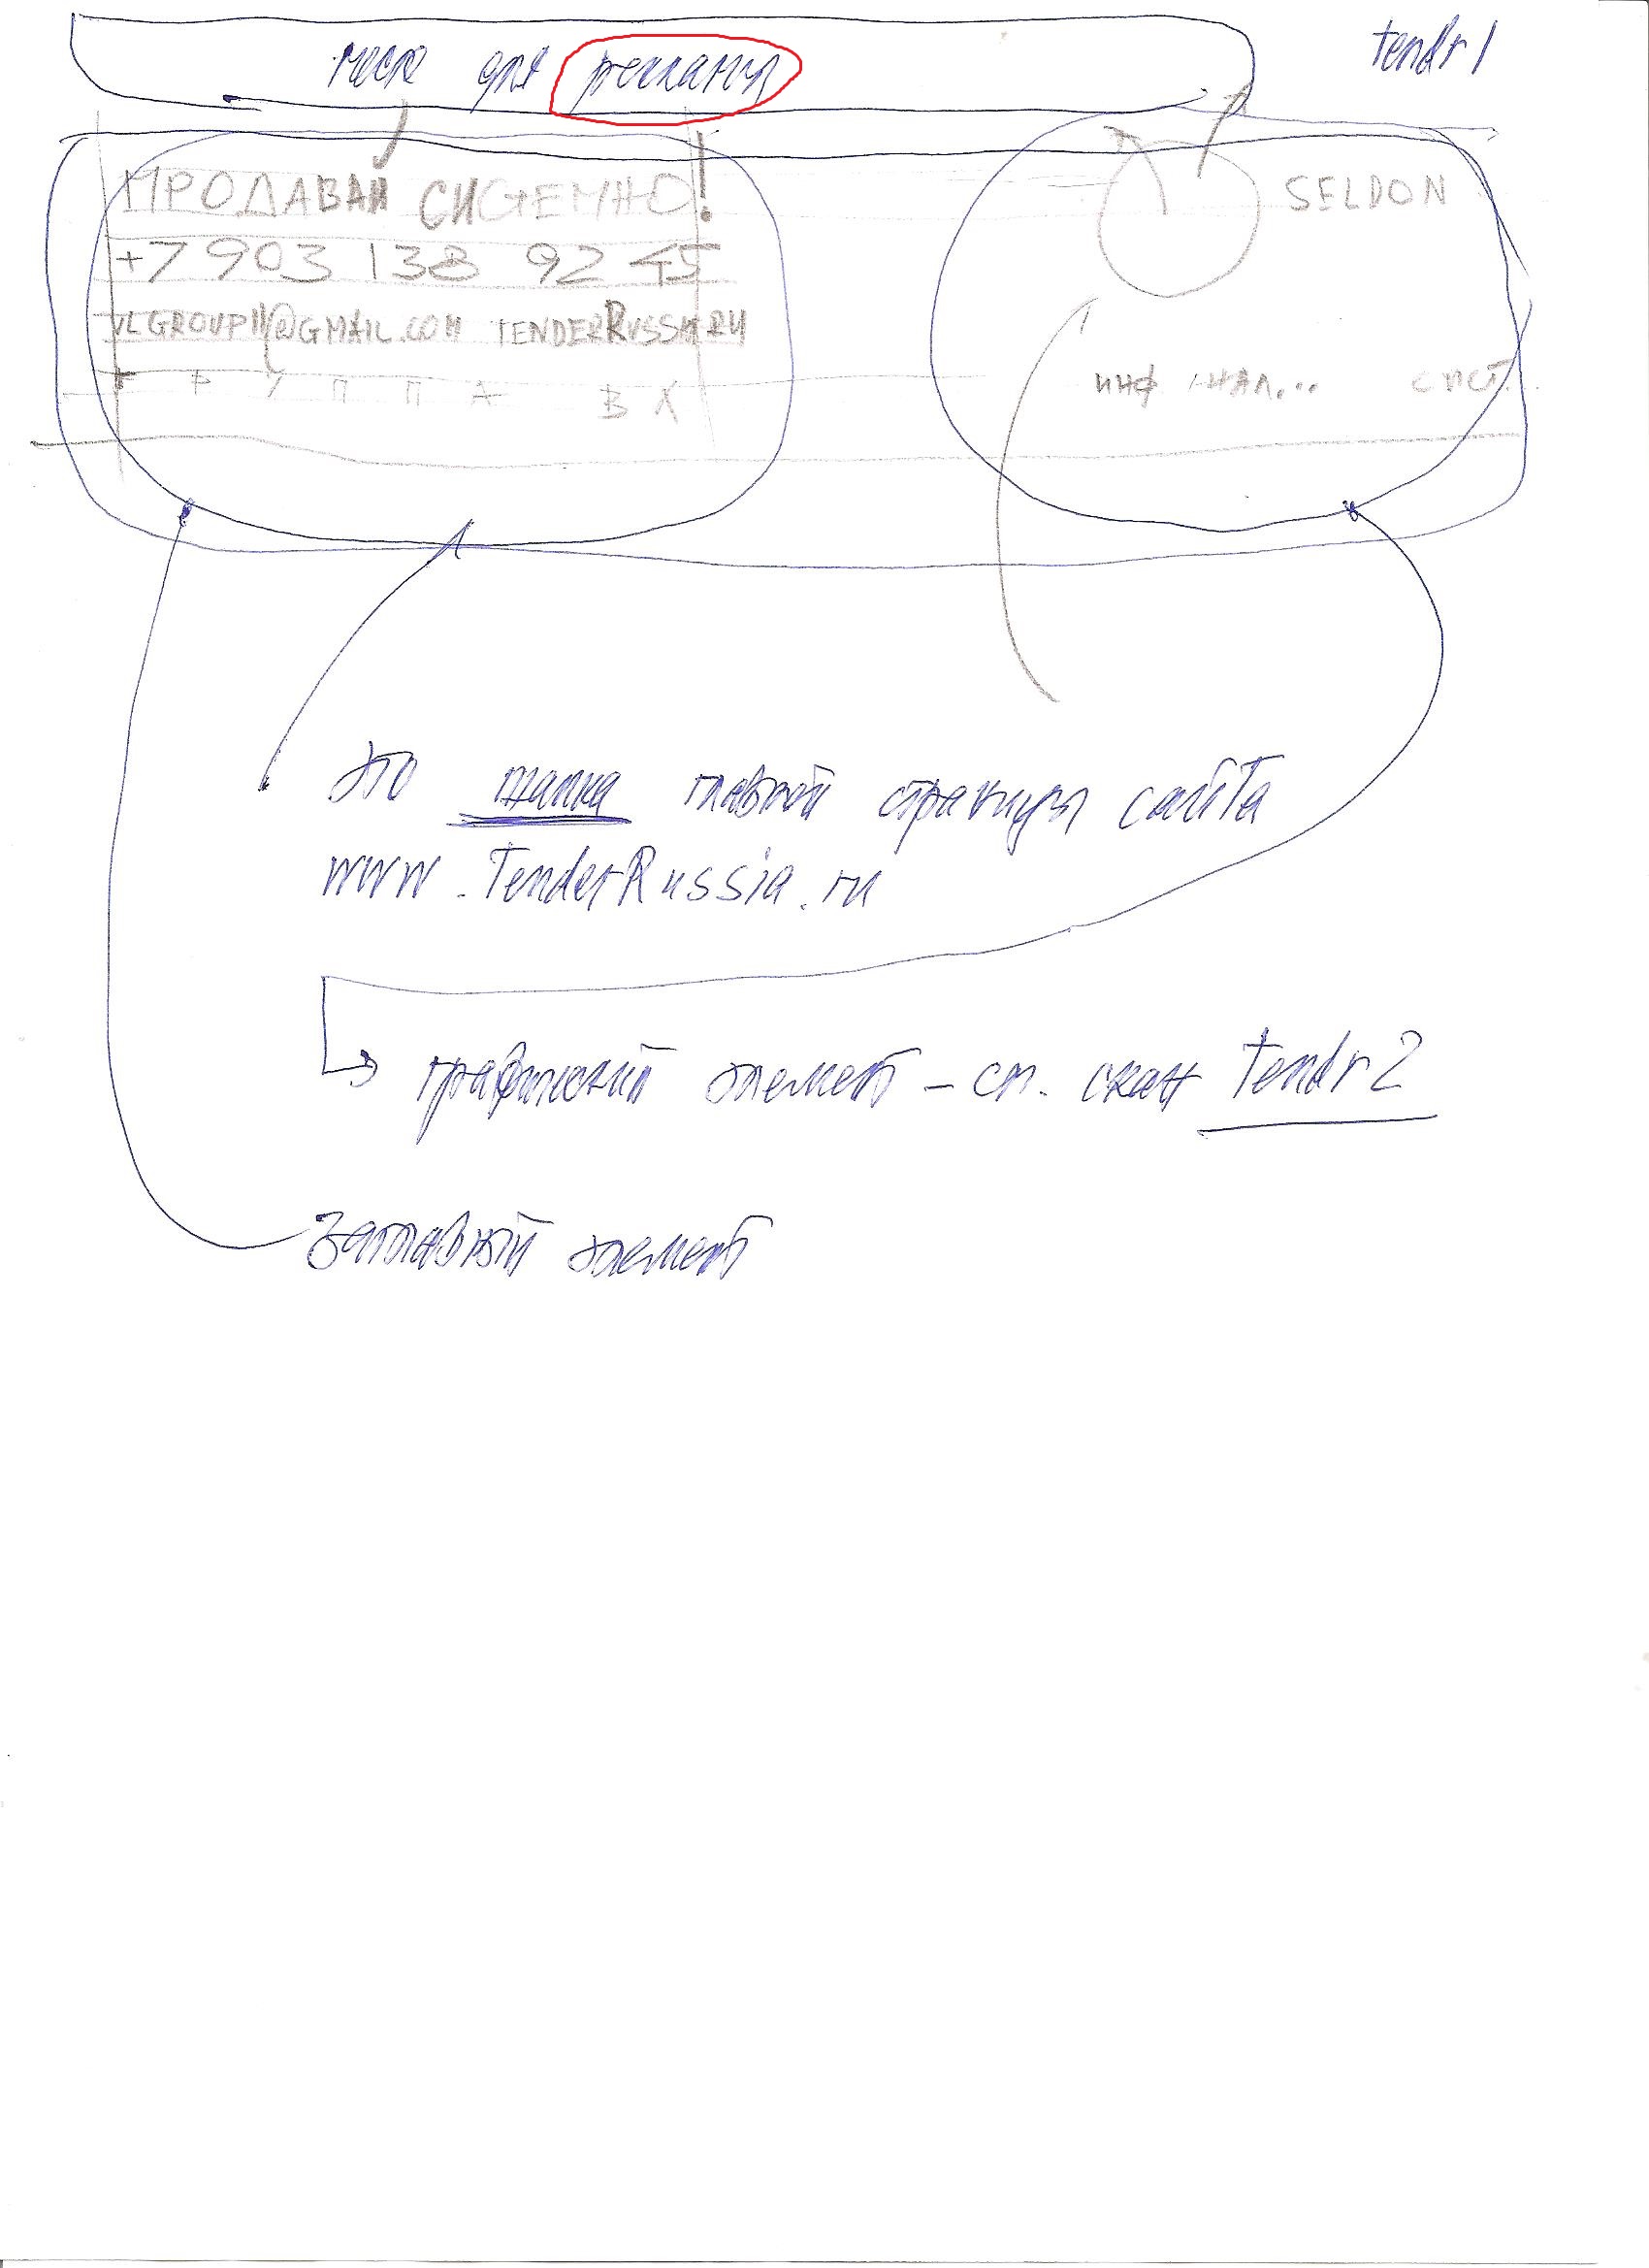 место для рекламы
tendr 1
ПРОДАВАЙ СИСТЕМНО!
SELDON
+7 903 138 92 45
VLGROUP11@GMAIL.COM TENDERRUSSIA.RU
инф .. нал... сист.
Г Р У П П А В Х
это шапка главной страницы сайта
www.TenderRussia.ru
графический элемент - см. скан tendr 2
Заглавный элемент